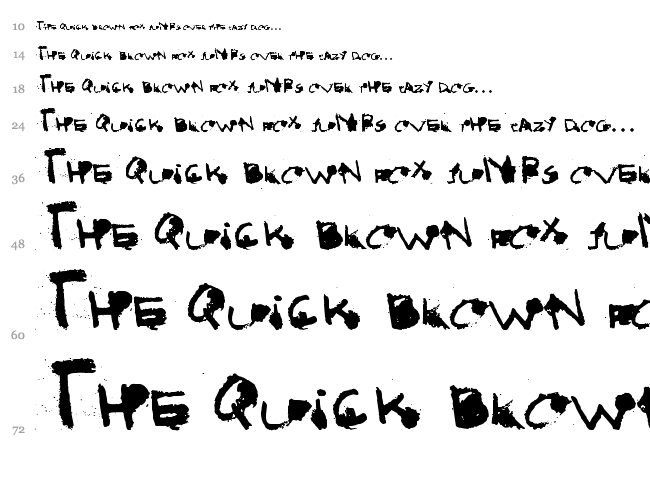 10 The Quick Brown Fox Jumps over the Lazy Dog...
14 The Quick Brown Fox Jumps over the Lazy Dog...
18 The Quick Brown Fox Jumps over the Lazy Dog...
24 The Quick Brown Fox Jumps over the Lazy Dog...
36 The Quick Brown Fox Jumps over
48 The Quick Brown Fox Jum
60 The Quick Brown Fo
72 The Quick Brown